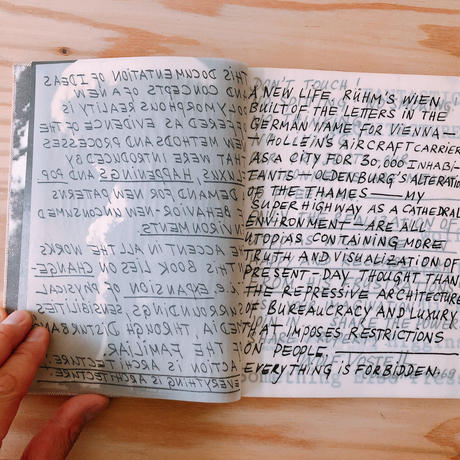 THIS DOCUMENTATION OF IDEAS
AND CONCEPTS OF A NEW
POLYMORPHOUS REALITY IS
OFFERED AS EVIDENCE OF THE
NEW METHODS AND PROCESSES
THAT WERE INTRODUCED BY
FLUXUS, HAPPENINGS, AND POP
DEMAND FOR NEW PATTERNS
BEHAVIOR-NEW UNCONSUMED
ENVIRONMENTS
THE ACCENT IN ALL THE WORKS
THIS BOOK LIES ON CHANGE-
I.E. EXPANSION OF PHYSICAL
SURROUNDINGS, SENSIBILITIES
MEDIA THROUGH DISTURBANC
THE FAMILIAR.
ACTION IS ARCHITECTURE!
EVERYTHING IS ARCHITECTURE!
DON'T TOUCH!
A NEW LIFE. RÜHM'S WIEN
BUILT OF THE LETTERS IN THE
GERMAN NAME FOR VIENNA—
HOLLEIN'S AIRCRAFT CARRIER
AS A CITY FOR 30,000 INHABI-
TANTS—OLDENBURG'S ALTERATION
OF THE THAMES—MY
SUPER HIGHWAY AS A CATHEDRAL
ENVIRONMENT—ARE ALL
UTOPIAS CONTAINING MORE
TRUTH AND VISUALIZATION OF
PRESENT-DAY THOUGHT THAN
THE REPRESSIVE ARCHITECTURE
OF BUREAUCRACY AND LUXURY
THAT IMPOSES RESTRICTIONS
ON PEOPLE.
EVERYTHING IS FORBIDDEN.
Something Else Press